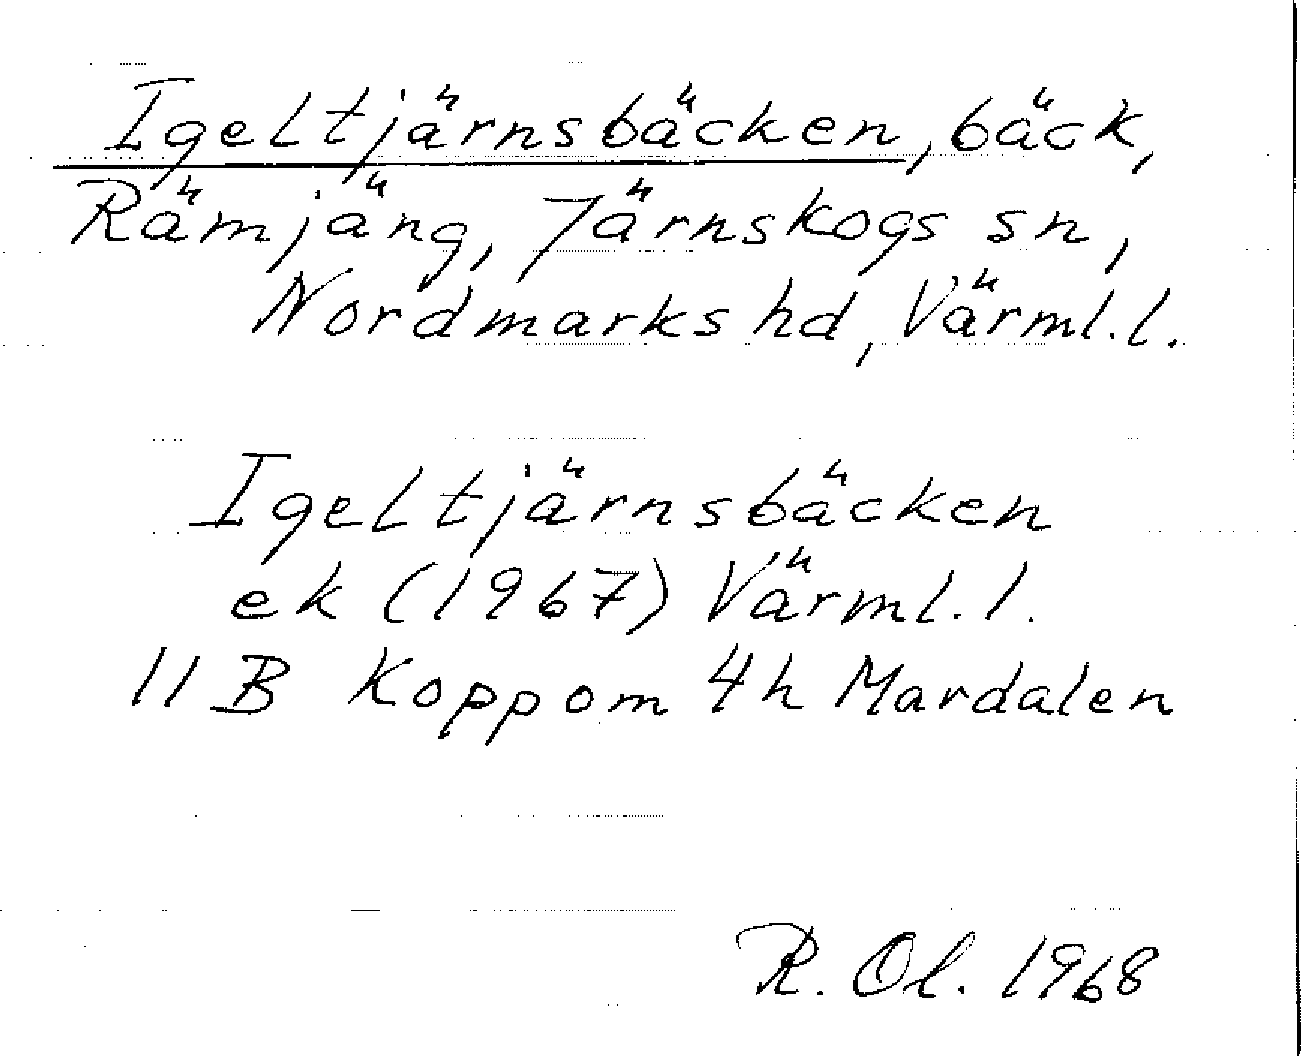 Igeltjärnsbäcken, bäck,
Rämjäng, Järnskogs sn,
Nordmarks hd, Värml. l.
Igeltjärnsbäcken
ek (1967) Värml. l.
11 B Koppom 4h Mardalen
R. Ol. 1968